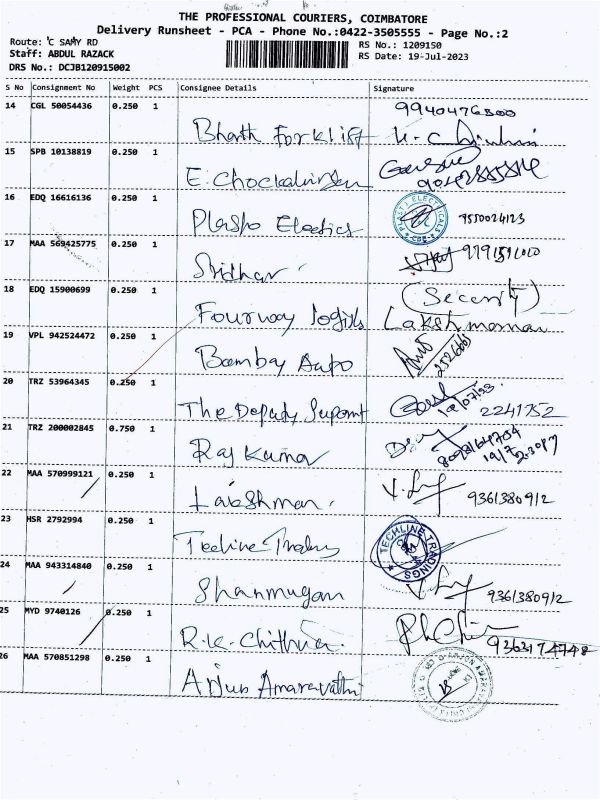 THE PROFESSIONAL COURIERS, COIMBATORE
Delivery Runsheet - PCA - Phone No.:0422-3505555 - Page No.:2
Route: 'C SAMY RD
RS No.: 1209150
Staff: ABDUL RAZACK
RS Date: 19-Jul-2023
DRS No.: DCJB120915002
S No Consignment No Weight PCS Consignee Details Signature
14 CGL 50054436 0.250 1
Bharth Forklift
15 SPB 10138819 0.250 1
E. Chockalingam
16 EDQ 16616136 0.250 1
Plasto Electics 9550024123
17 MAA 569425775 0.250 1
Sridhar
18 EDQ 15900699 0.250 1 (Security)
Fourway logistics Lakshmanan
19 VPL 942524472 0.250 1
Bombay Auto 2526661
20 TRZ 53964345 0.250 1
The Deputy Supernt 2241752
21 TRZ 200002845 0.750 1
Raj Kumar 19/7 2.30pm
22 MAA 570999121 0.250 1
Lakshman. 9361380912
23 HSR 2792994 0.250 1
Tecline Trading TECHLINE TRADINGS
24 MAA 943314840 0.250 1
Shanmugam 9361380912
25 MYD 9740126 0.250 1
R.K. Chithra. 9363174748
26 MAA 570851298 0.250 1
Arjun Amaravathi